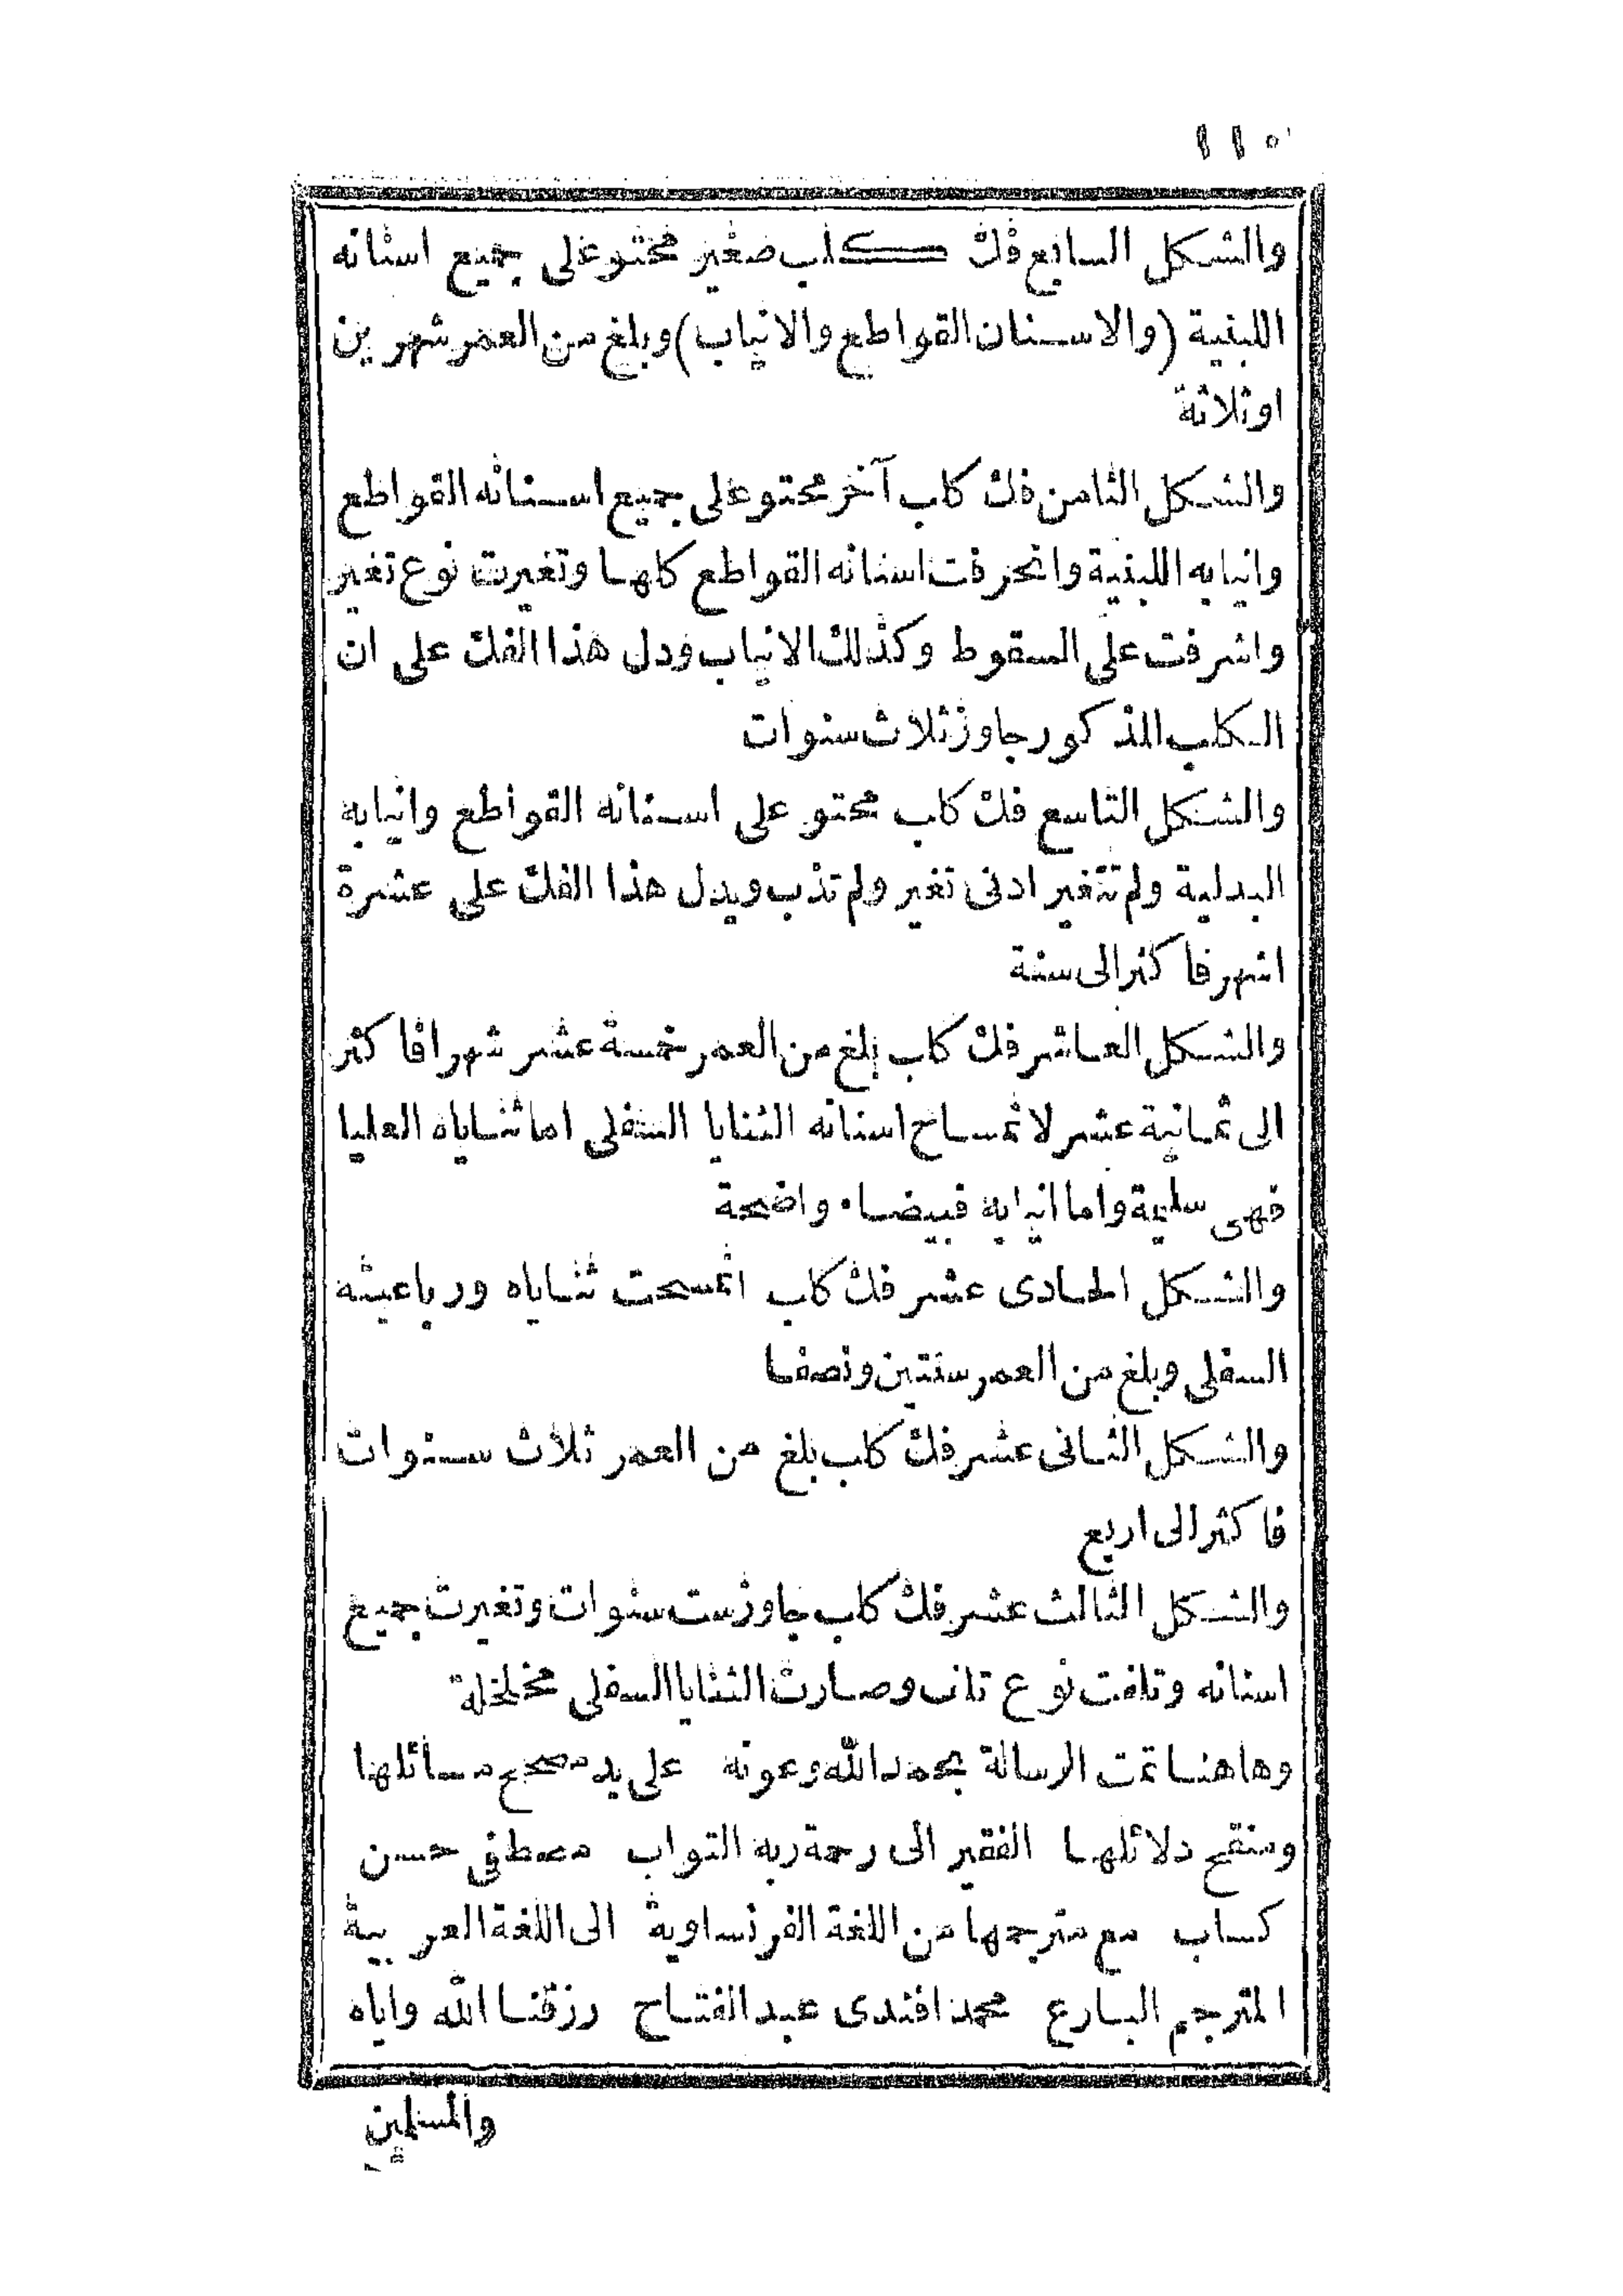 ١١٠
والشكل السابع فك كلب صغير محتو على جميع اسنانه
اللبنية (والاسنان القواطع والانياب) وبلغ من العمر شهرين
او ثلاثة
والشكل الثامن فك كلب آخر محتو على جميع اسنانه القواطع
وانيابه اللبنية وانحرفت اسنانه القواطع كلها وتغيرت نوع تغير
واشرفت على السقوط وكذلك الانياب ودل هذا الفك على ان
الكلب المذكور جاوز ثلاث سنوات
والشكل التاسع فك كلب محتو على اسنانه القواطع وانيابه
البدلية ولم تتغير ادنى تغير ولم تذب ويدل هذا الفك على عشرة
اشهر فاكثر الى سنة
والشكل العاشر فك كلب بلغ من العمر خمسة عشر شهرا فاكثر
الى ثمانية عشر لا تمساح اسنانه الثنايا السفلى اما ثناياه العليا
فهى سليمة واما انيابه فبيضاء واضحة
والشكل الحادى عشر فك كلب انمسحت ثناياه ورباعيته
السفلى وبلغ من العمر سنتين ونصفا
والشكل الثانى عشر فك كلب بلغ من العمر ثلاث سنوات
فاكثر الى اربع
والشكل الثالث عشر فك كلب جاوز ست سنوات وتغيرت جميع
اسنانه وتلفت نوع تلف وصارت الثنايا السفلى مخلخلة
وهاهنا تمت الرسالة بحمد الله وعونه على يد مصحح مسائلها
ومنقح دلائلها الفقير الى رحمة ربه التواب مصطفى حسن
كساب مع مترجمها من اللغة الفرنساوية الى اللغة العربية
المترجم البارع محمد افندى عبد الفتاح رزقنا الله واياه
والمسلمين